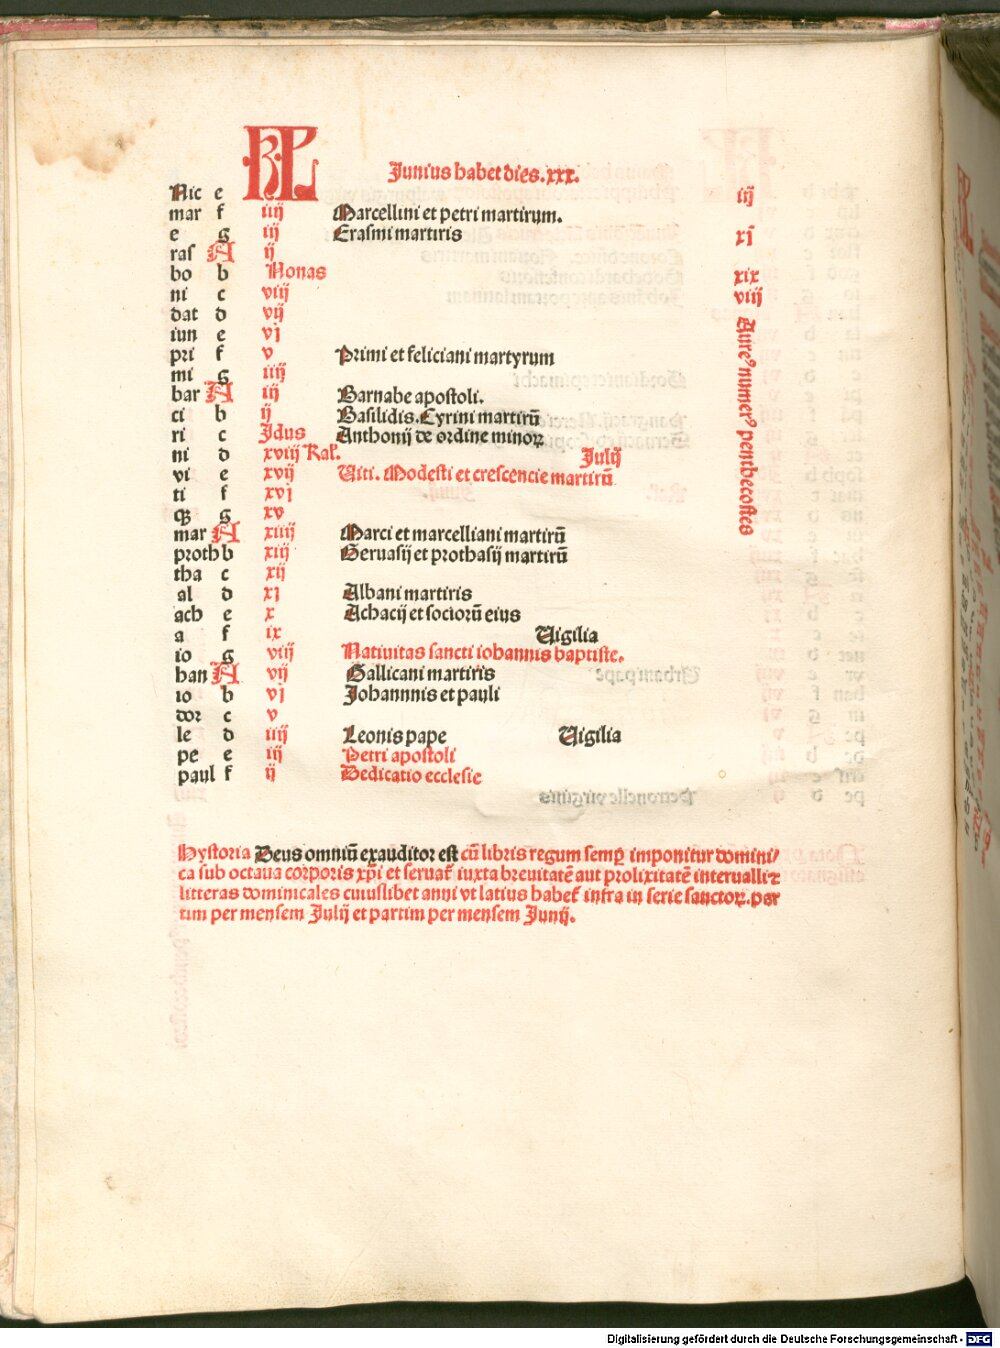 KL
Junius habet dies .xxx.
Nic e iij
mar f iiij Marcellini et petri martirum.
e g iij Erasmi martiris xi
ras A ij
bo b Nonas xix
ni c viij viij
dat d vij
iun e vj
pri f v Primi et feliciani martyrum
mi g iiij
bar A iij Barnabe apostoli.
ci b ij Basilidis. Cyrini martirū
ri c Jdus Anthonij de ordine minoꝝ
ni d xviij Kal'. Julij
vi e xvij Uiti. Modesti et crescencie martirū
ti f xvj
qꝫ g xv
mar A xiiij Marci et marcelliani martirū
proth b xiij Geruasij et prothasij martirū
tha c xij
al d xj Albani martiris
ach e x Achacij et sociorū eius
a f ix Uigilia
io g viij Natiuitas sancti iohannis baptiste.
ban A vij Gallicani martiris
io b vj Johannnis et pauli
dor c v
le d iiij Leonis pape Uigilia
pe e iij Petri apostoli
paul f ij Dedicatio ecclesie
Aureꝰ numerꝰ penthecostes
Hystoria Deus omniū exauditor est cū libris regum semꝑ imponitur domini/
ca sub octaua corporis xp̄i et seruat' iuxta breuitatē aut prolixitatē interualli ⁊
litteras dominicales cuiuslibet anni vt latius habet' infra in serie sanctoꝝ. per
tim per mensem Julij et partim per mensem Junij.
Digitalisierung gefördert durch die Deutsche Forschungsgemeinschaft - DFG